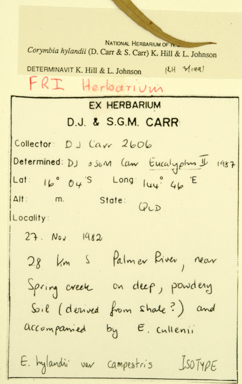 NATIONAL HERBARIUM OF N
Corymbia hylandii (D. Carr & S. Carr) K. Hill & L. Johnson
DETERMINAVIT K. Hill & L. Johnson
FRI Herbarium
EX HERBARIUM
D.J. & S.G.M. CARR
Collector: DJ Carr 2606
Determined: DJ & SGM Carr Eucalyptus II 1987
Lat. 16° 04'S Long: 144° 46'E
Alt: m. State: QLD
Locality:
27. Nov 1982
28 km S Palmer River, near
Spring creek on deep, powdery
Soil (derived from shale?) and
accompanied by E. cullenii
E. hylandii var campestris ISOTYPE